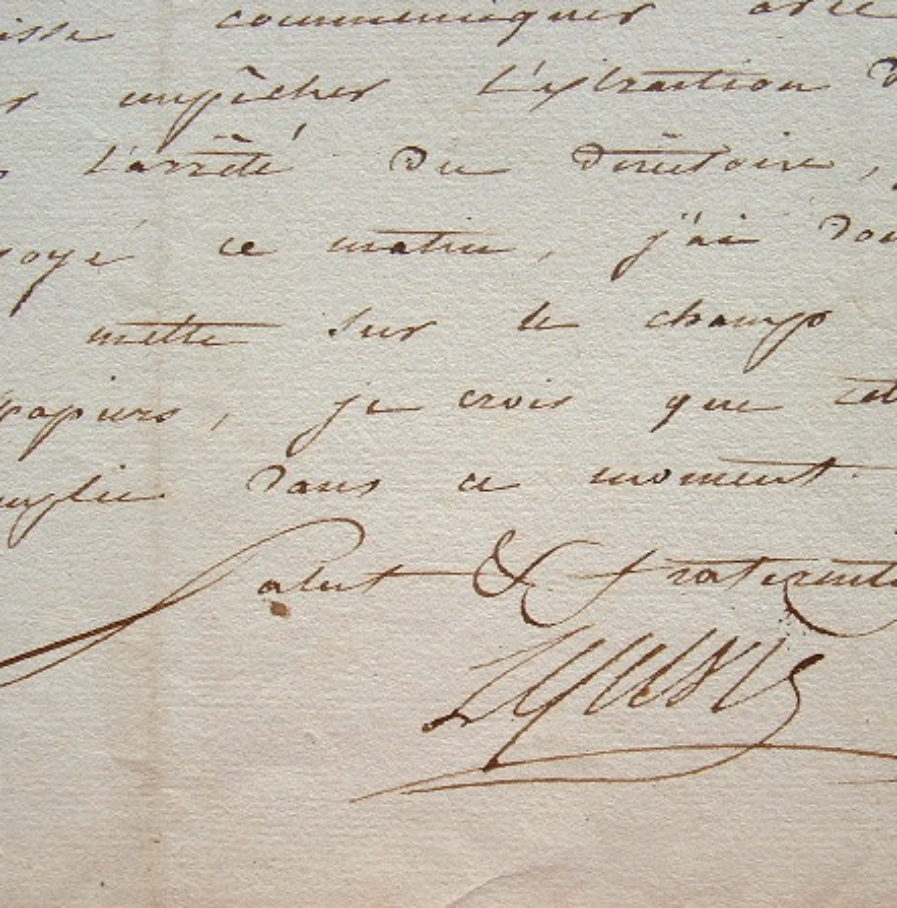 isse communiquer avec
r empêcher l'extraction d
s l'arrêté du directoire,
voyé ce matin, j'ai don
mette sur le champ
papiers, je crois que cet
mplie dans ce moment.
Salut & fraternité